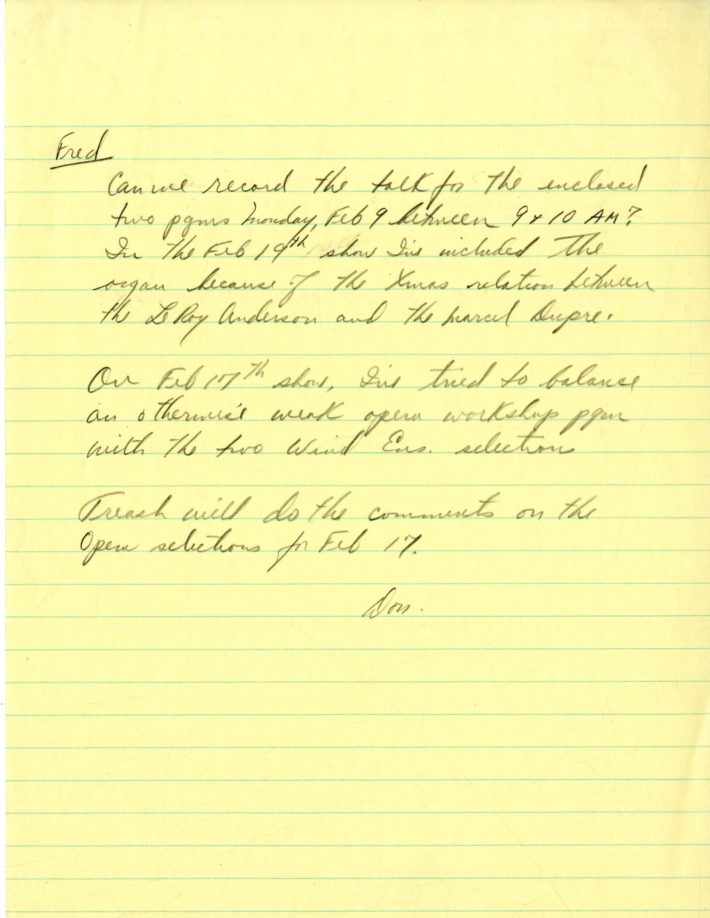 Fred
Can we record the talk for the enclosed
two pgms Monday, Feb 9 between 9 & 10 AM?
In the Feb 19th show I've included the
organ because of the Xmas relation between
the LeRoy Anderson and the Marcel Dupre.
On Feb 17th show, I've tried to balance
an otherwise weak opera workshop pgm
with the two Wind Ens. selections
Treash will do the comments on the
Opera selections for Feb 17.
Don.